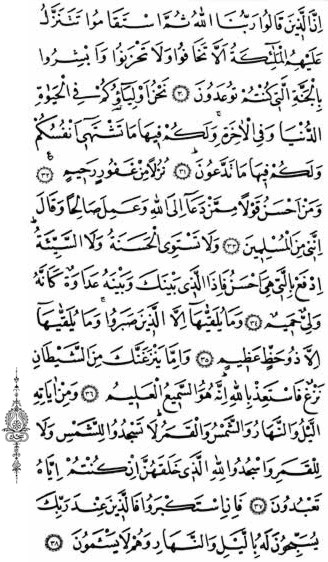 اِنَّ الَّذ۪ينَ قَالُوا رَبُّنَا اللّٰهُ ثُمَّ اسْتَقَامُوا تَتَنَزَّلُ
عَلَيْهِمُ الْمَلٰٓئِكَةُ اَلَّا تَخَافُوا وَلَا تَحْزَنُوا وَاَبْشِرُوا
بِالْجَنَّةِ الَّت۪ي كُنْتُمْ تُوعَدُونَ ﴿٣٠﴾ نَحْنُ اَوْلِيَٓاؤُ۬كُمْ فِي الْحَيٰوةِ
الدُّنْيَا وَفِي الْاٰخِرَةِۚ وَلَكُمْ ف۪يهَا مَا تَشْتَه۪ٓي اَنْفُسُكُمْ
وَلَكُمْ ف۪يهَا مَا تَدَّعُونَۜ ﴿٣١﴾ نُزُلًا مِنْ غَفُورٍ رَح۪يمٍ۟ ﴿٣٢﴾
وَمَنْ اَحْسَنُ قَوْلًا مِمَّنْ دَعَٓا اِلَى اللّٰهِ وَعَمِلَ صَالِحًا وَقَالَ
اِنَّن۪ي مِنَ الْمُسْلِم۪ينَ ﴿٣٣﴾ وَلَا تَسْتَوِي الْحَسَنَةُ وَلَا السَّيِّئَةُۜ
اِدْفَعْ بِالَّت۪ي هِيَ اَحْسَنُ فَاِذَا الَّذ۪ي بَيْنَكَ وَبَيْنَهُ عَدَاوَةٌ كَاَنَّهُ
وَلِيٌّ حَم۪يمٌ ﴿٣٤﴾ وَمَا يُلَقّٰيهَٓا اِلَّا الَّذ۪ينَ صَبَرُواۚ وَمَا يُلَقّٰيهَٓا
اِلَّا ذُو حَظٍّ عَظ۪يمٍ ﴿٣٥﴾ وَاِمَّا يَنْزَغَنَّكَ مِنَ الشَّيْطَانِ
نَزْغٌ فَاسْتَعِذْ بِاللّٰهِۜ اِنَّهُ هُوَ السَّم۪يعُ الْعَل۪يمُ ﴿٣٦﴾ وَمِنْ اٰيَاتِهِ
الَّيْلُ وَالنَّهَارُ وَالشَّمْسُ وَالْقَمَرُۜ لَا تَسْجُدُوا لِلشَّمْسِ وَلَا
لِلْقَمَرِ وَاسْجُدُوا لِلّٰهِ الَّذ۪ي خَلَقَهُنَّ اِنْ كُنْتُمْ اِيَّاهُ
تَعْبُدُونَ ﴿٣٧﴾ فَاِنِ اسْتَكْبَرُوا فَالَّذ۪ينَ عِنْدَ رَبِّكَ
يُسَبِّحُونَ لَهُ بِالَّيْلِ وَالنَّهَارِ وَهُمْ لَا يَسْـَٔمُونَ ﴿٣٨﴾